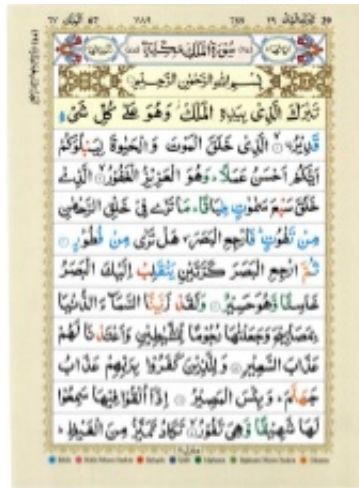 سُوْرَةُ الْمُلْكِ مَكِّيَّةٌ
بِسْمِ اللّٰهِ الرَّحْمٰنِ الرَّحِيْمِ
تَبٰرَكَ الَّذِيْ بِيَدِهِ الْمُلْكُ وَهُوَ عَلٰى كُلِّ شَیْءٍ
قَدِيْرُ الَّذِيْ خَلَقَ الْمَوْتَ وَ الْحَيٰوةَ لِيَبْلُوَكُمْ
اَيُّكُمْ اَحْسَنُ عَمَلًا وَهُوَ الْعَزِيْزُ الْغَفُوْرُ الَّذِيْ
خَلَقَ سَبْعَ سَمٰوٰتٍ طِبَاقًا مَا تَرٰى فِيْ خَلْقِ الرَّحْمٰنِ
مِنْ تَفٰوُتٍ فَارْجِعِ الْبَصَرَ هَلْ تَرٰى مِنْ فُطُوْرٍ
ثُمَّ ارْجِعِ الْبَصَرَ كَرَّتَيْنِ يَنْقَلِبْ اِلَيْكَ الْبَصَرُ
خَاسِئًا وَّهُوَ حَسِيْرٌ وَلَقَدْ زَيَّنَّا السَّمَآءَ الدُّنْيَا
بِمَصَابِيْحَ وَجَعَلْنٰهَا رُجُوْمًا لِّلشَّيٰطِيْنِ وَاَعْتَدْنَا لَهُمْ
عَذَابَ السَّعِيْرِ وَ لِلَّذِيْنَ كَفَرُوْا بِرَبِّهِمْ عَذَابُ
جَهَنَّمَ وَ بِئْسَ الْمَصِيْرُ اِذَا اُلْقُوْا فِيْهَا سَمِعُوْا
لَهَا شَهِيْقًا وَّهِيَ تَفُوْرُ تَكَادُ تَمَيَّزُ مِنَ الْغَيْظِ